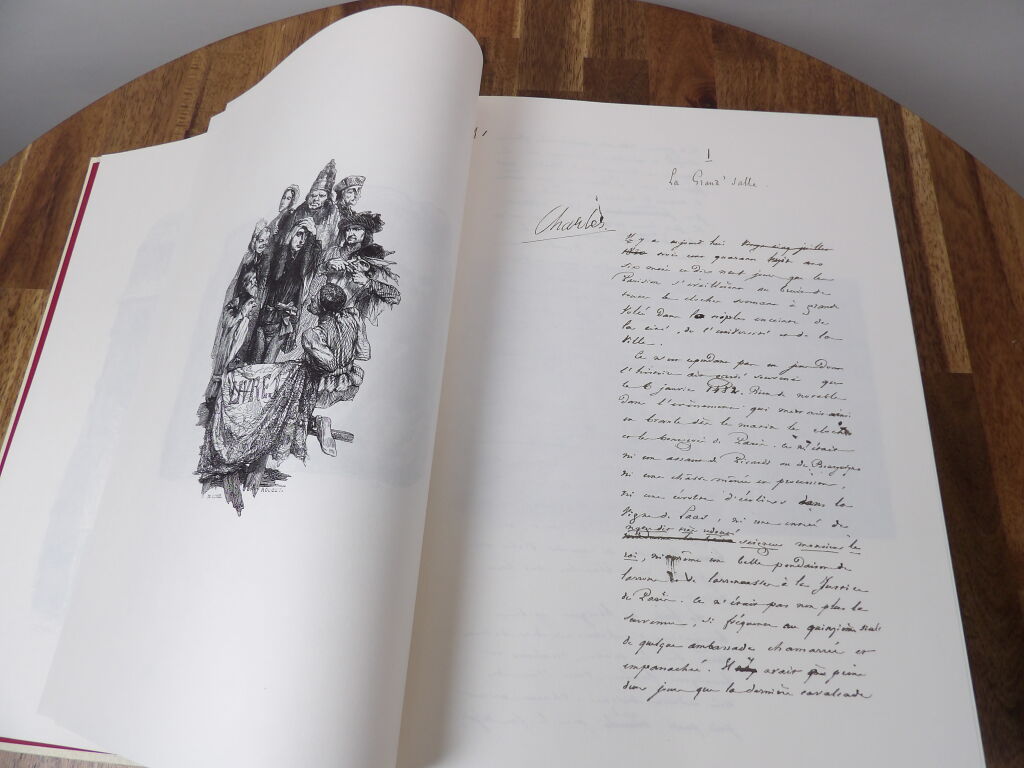 I
La Grand'salle.
Charles.
Il y a aujourd'hui
six mois et dix neuf jours que les
Parisiens s'éveillèrent au bruit de
toutes les cloches sonnant à grande
volée dans la triple enceinte de
la cité, de l'université et de la
Ville.
Ce n'est cependant pas un jour dont
l'histoire ait gardé souvenir que
le 6 janvier 1482. Rien de notable
dans l'évènement qui mettait ainsi
en branle dès le matin les cloches
et les bourgeois de Paris. Ce n'était
ni un assaut de Picards ou de Bourguignons
ni une châsse menée en procession,
ni une révolte d'écoliers dans la
Vigne de Laas, ni une entrée de
notre dit très redouté
seigneur monsieur le
roi, ni même une belle pendaison de
larrons et de larronnesses à la Justice
de Paris. Ce n'était pas non plus la
survenue, si fréquente au quinzième siècle
de quelque ambassade chamarrée et
empanachée. Il y avait à peine
deux jours que la dernière cavalcade